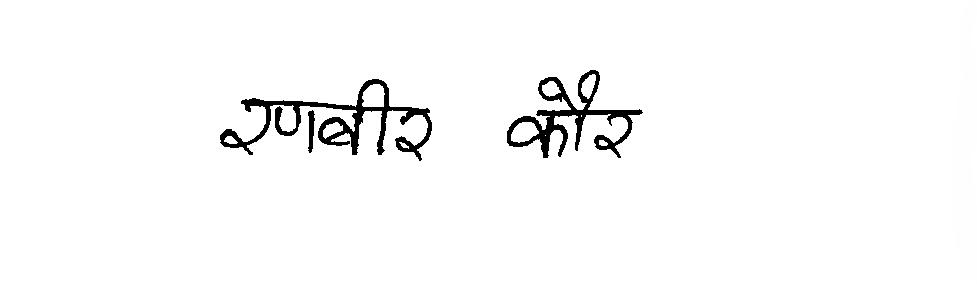 रणबीर कौर